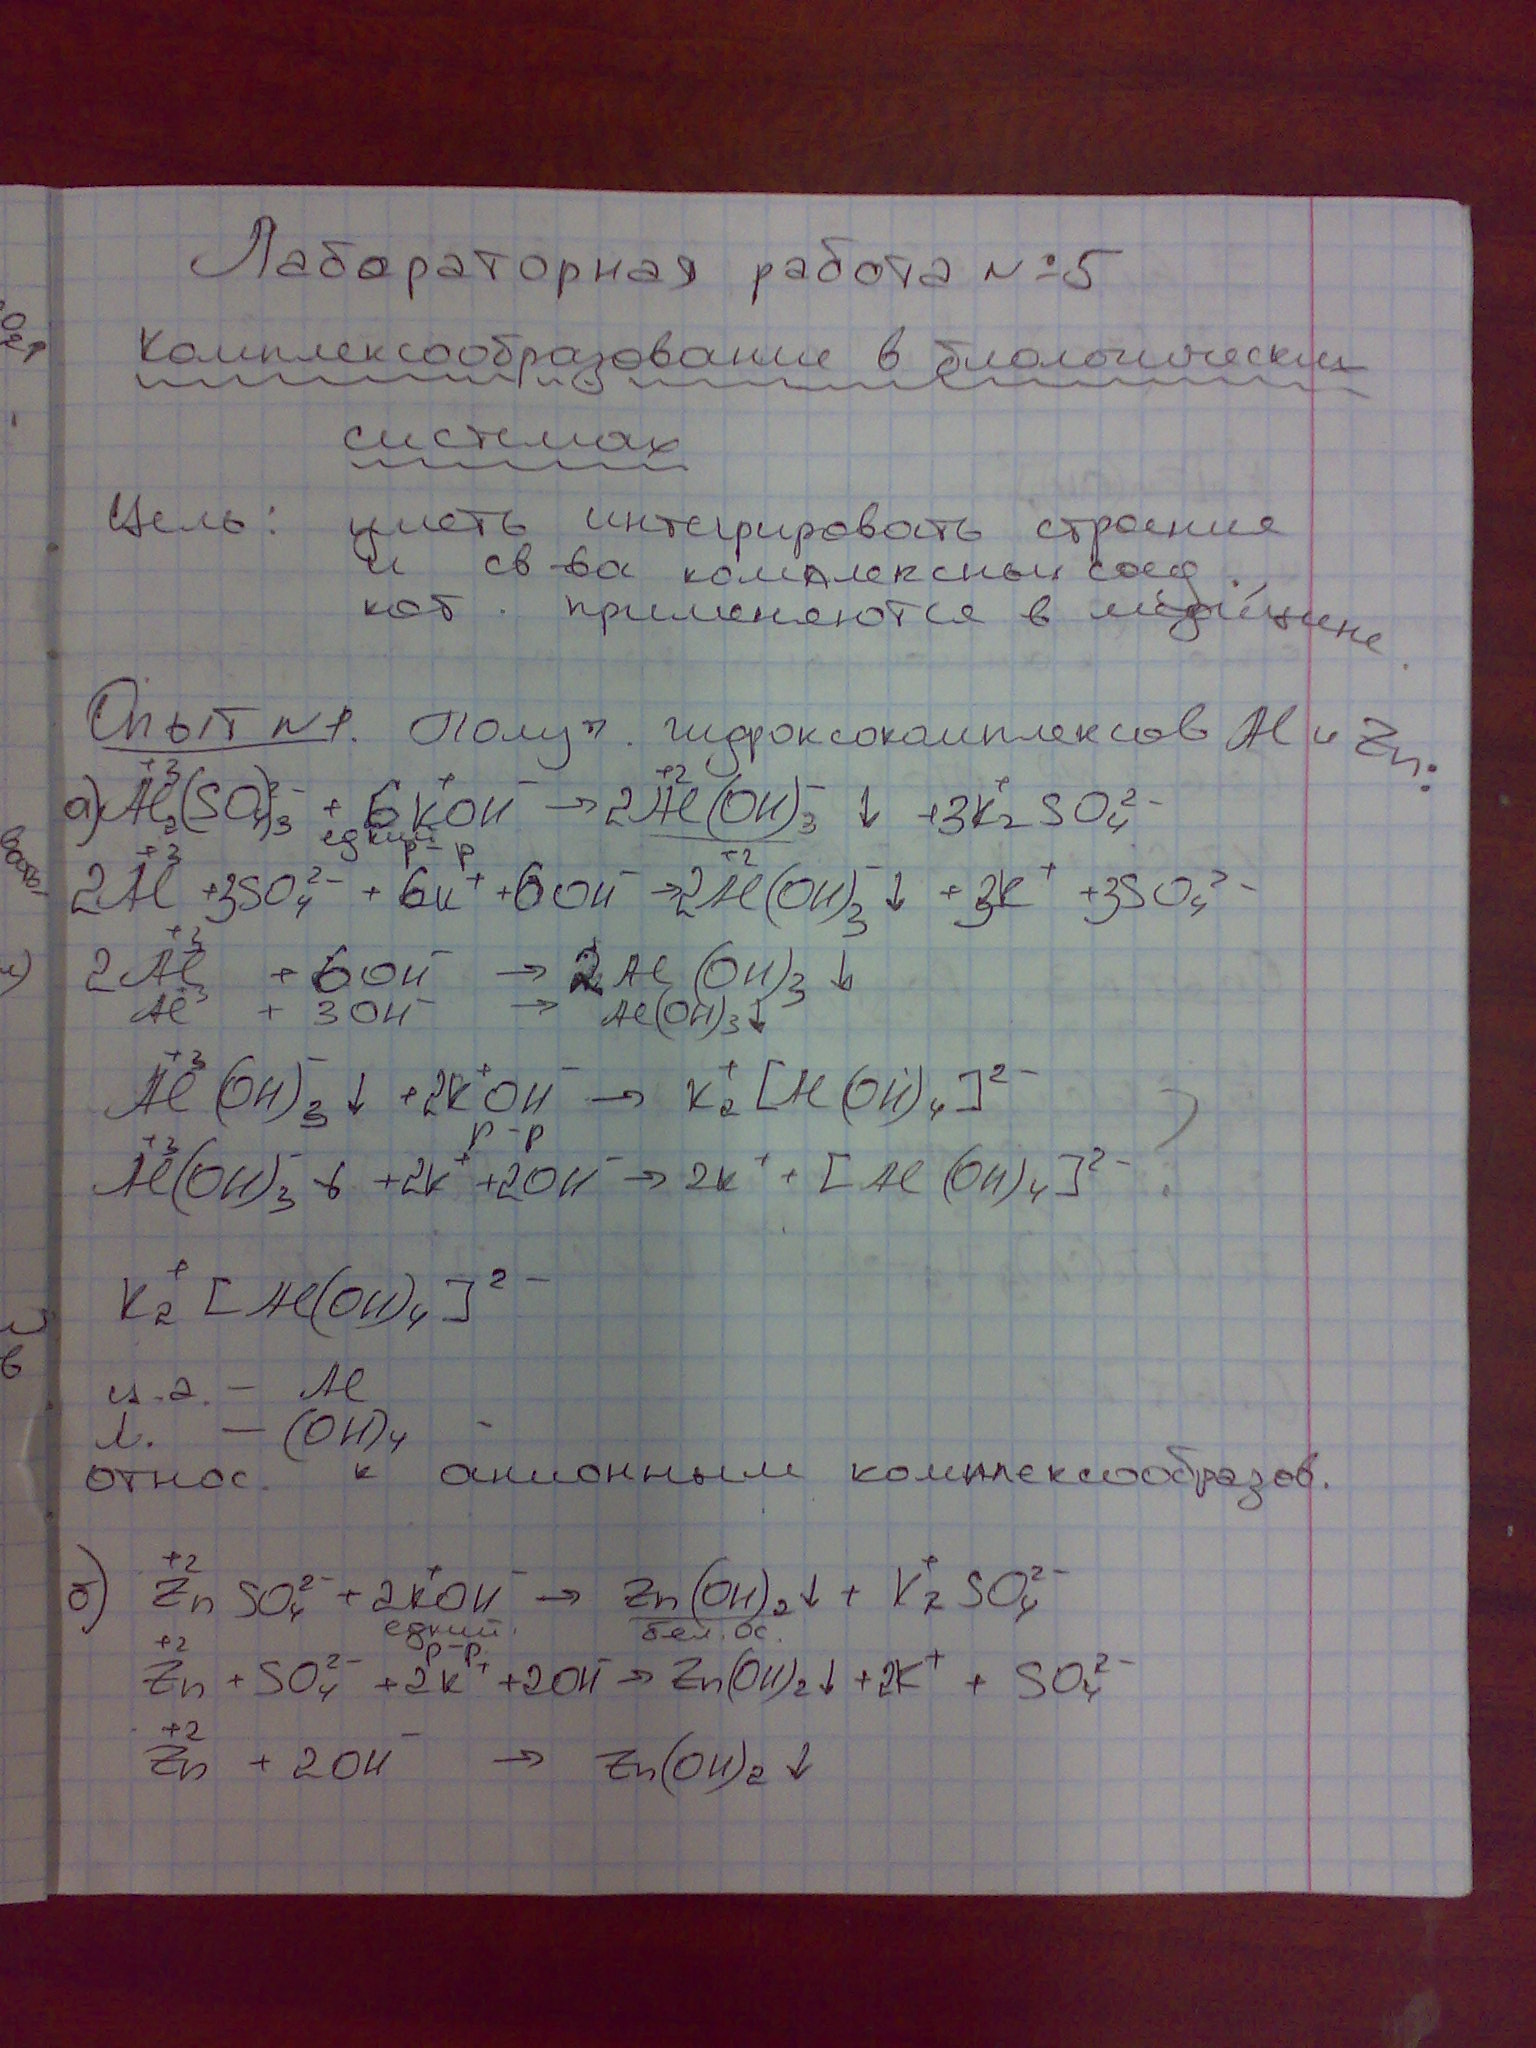 Лабораторная работа №5
Комплексообразование в биологических
системах
Цель: уметь интегрировать строение
и св-ва комплексных соед.,
кот. применяются в медицине.
Опыт №1. Получ. гидроксокомплексов Al и Zn:
а) Al₂⁺³(SO₄)₃²⁻ + 6K⁺OH⁻ → 2Al⁺²(OH)₃⁻↓ + 3K₂⁺SO₄²⁻
едкий р-р
2Al⁺³ + 3SO₄²⁻ + 6K⁺ + 6OH⁻ → 2Al⁺²(OH)₃⁻↓ + 3K⁺ + 3SO₄²⁻
2Al⁺³ + 6OH⁻ → 2Al(OH)₃↓
Al⁺³ + 3OH⁻ → Al(OH)₃↓
Al⁺³(OH)₃⁻↓ + 2K⁺OH⁻ → K₂⁺[Al(OH)₄]²⁻
р-р
Al⁺³(OH)₃⁻↓ + 2K⁺ + 2OH⁻ → 2K⁺ + [Al(OH)₄]²⁻ ?
K₂⁺[Al(OH)₄]²⁻
ц.а. – Al
л. – (OH)₄⁻
относ. к анионным комплексообразов.
б) Zn⁺²SO₄²⁻ + 2K⁺OH⁻ → Zn(OH)₂↓ + K₂⁺SO₄²⁻
едкий р-р бел. ос.
Zn⁺² + SO₄²⁻ + 2K⁺ + 2OH⁻ → Zn(OH)₂↓ + 2K⁺ + SO₄²⁻
Zn⁺² + 2OH⁻ → Zn(OH)₂↓